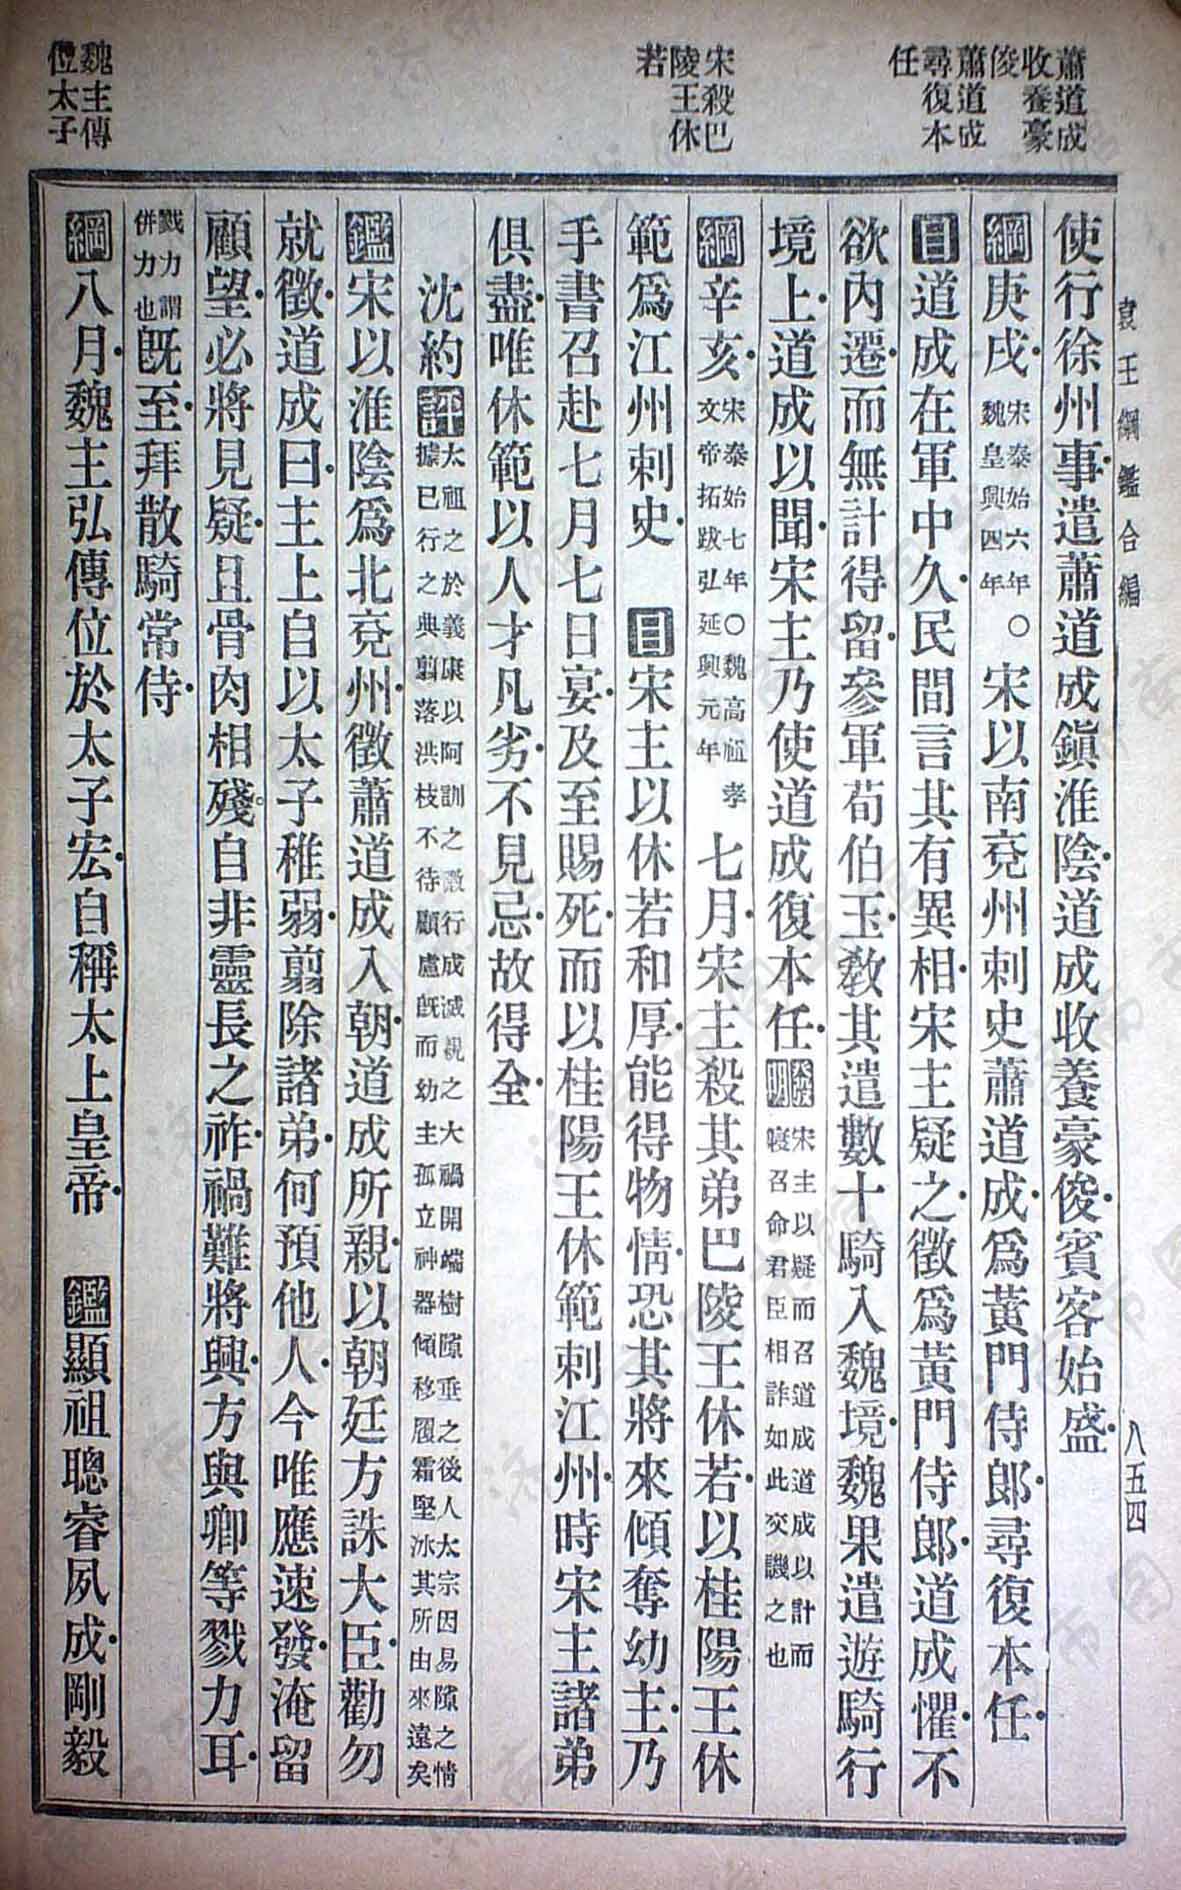 袁王綱鑑合編
八五四
蕭道成
收養豪
俊
蕭道成
尋復本
任
宋殺巴
陵王休
若
魏主傳
位太子
使行徐州事遣蕭道成鎭淮陰道成收養豪俊賓客始盛
綱庚戌宋泰始六年魏皇興四年○宋以南兗州刺史蕭道成爲黃門侍郎尋復本任
目道成在軍中久民間言其有異相宋主疑之徵爲黃門侍郎道成懼不
欲內遷而無計得留參軍荀伯玉敎其遣數十騎入魏境魏果遣遊騎行
境上道成以聞宋主乃使道成復本任發明宋主以疑而召道成道成以計而寢召命君臣相詐如此交譏之也
綱辛亥宋泰始七年○魏高祖孝文帝拓跋弘延興元年七月宋主殺其弟巴陵王休若以桂陽王休
範爲江州刺史　目宋主以休若和厚能得物情恐其將來傾奪幼主乃
手書召赴七月七日宴及至賜死而以桂陽王休範刺江州時宋主諸弟
俱盡唯休範以人才凡劣不見忌故得全
沈約評太祖之於義康以阿訓之微行成滅親之大禍開端樹隙垂之後人太宗因易隙之情據已行之典翦落洪枝不待顧慮旣而幼主孤立神器傾移履霜堅冰其所由來遠矣
鑑宋以淮陰爲北兗州徵蕭道成入朝道成所親以朝廷方誅大臣勸勿
就徵道成曰主上自以太子稚弱翦除諸弟何預他人今唯應速發淹留
顧望必將見疑且骨肉相殘自非靈長之祚禍難將興方與卿等戮力耳
戮力謂併力也旣至拜散騎常侍
綱八月魏主弘傳位於太子宏自稱太上皇帝　鑑顯祖聰睿夙成剛毅